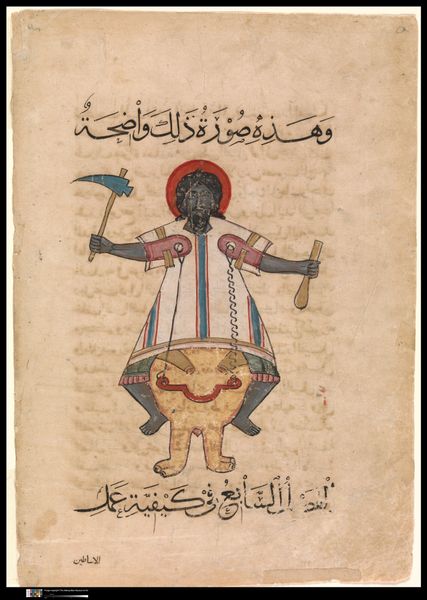 وَهَذِهِ صُوْرَةُ ذَلِكَ وَاضِحَةٌ
الفصل السَّابِعُ فِي كَيْفِيَّةِ عَمَلِ
الاساطين